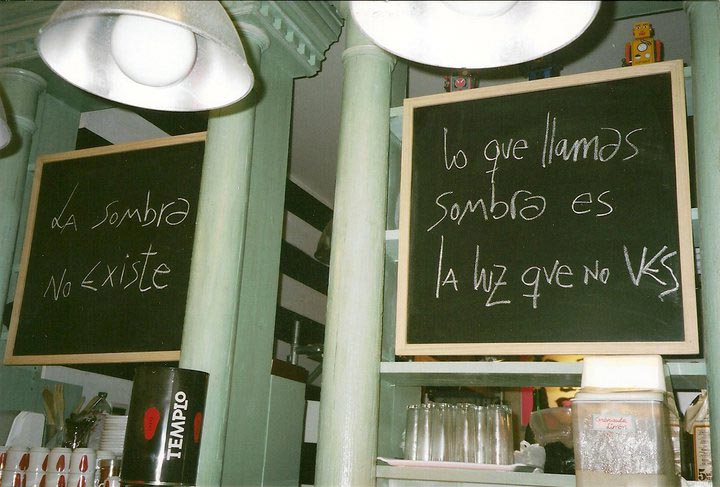 LA sombra
No Existe
lo que llamas
sombra es
lA luz que no VES
TEMPLO
Granizada
Limón